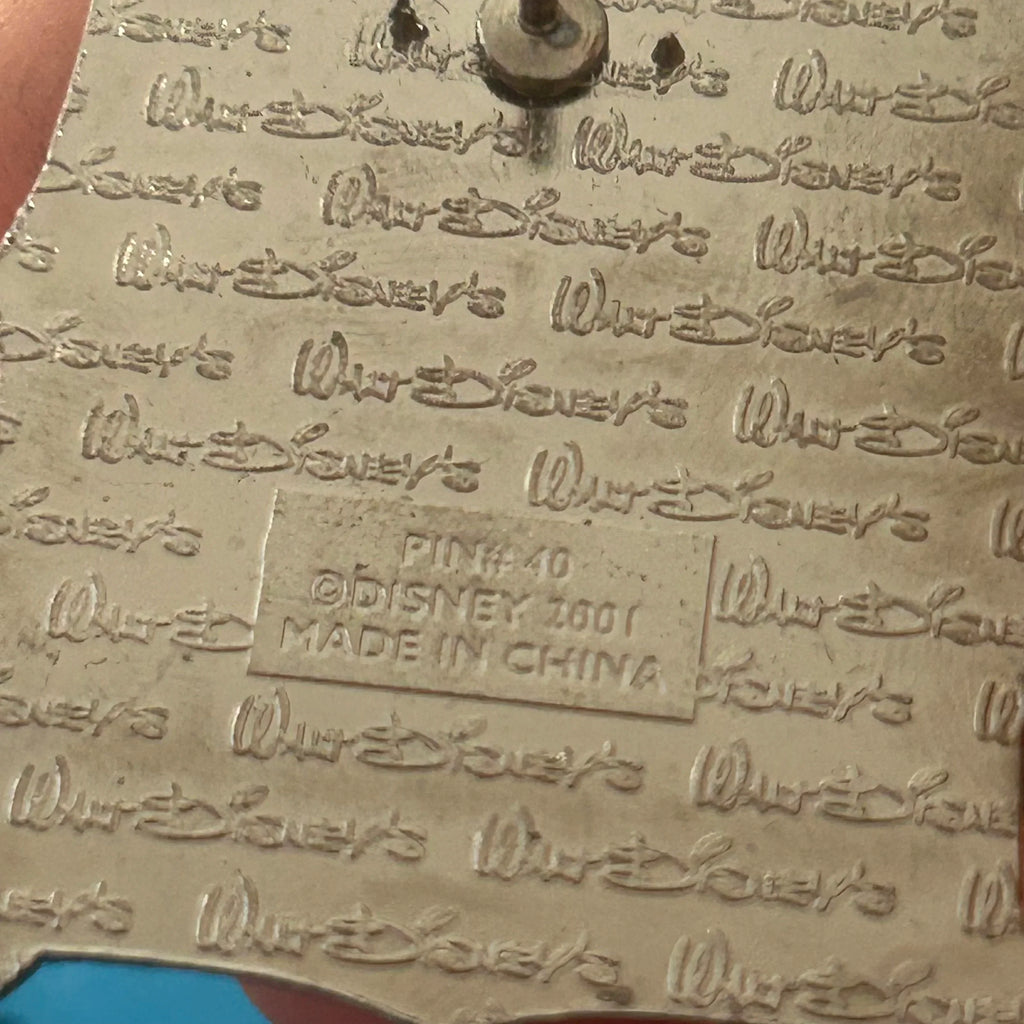 Disney's
Disney's Walt Disney's Walt Dis
Walt Disney's Walt Disney's
Disney's Walt Disney's Walt Disn
Walt Disney's Walt Disney's
Disney's Walt Disney's Walt Disn
Walt Disney's Walt Disney's
Disney's
PIN# 40
©DISNEY 2001
MADE IN CHINA
Walt D Walt Disn
sney's Disney's
Walt Disney's Walt Disne
Walt Disney's Walt Disney's
ney's Walt Disney's Walt Disney's